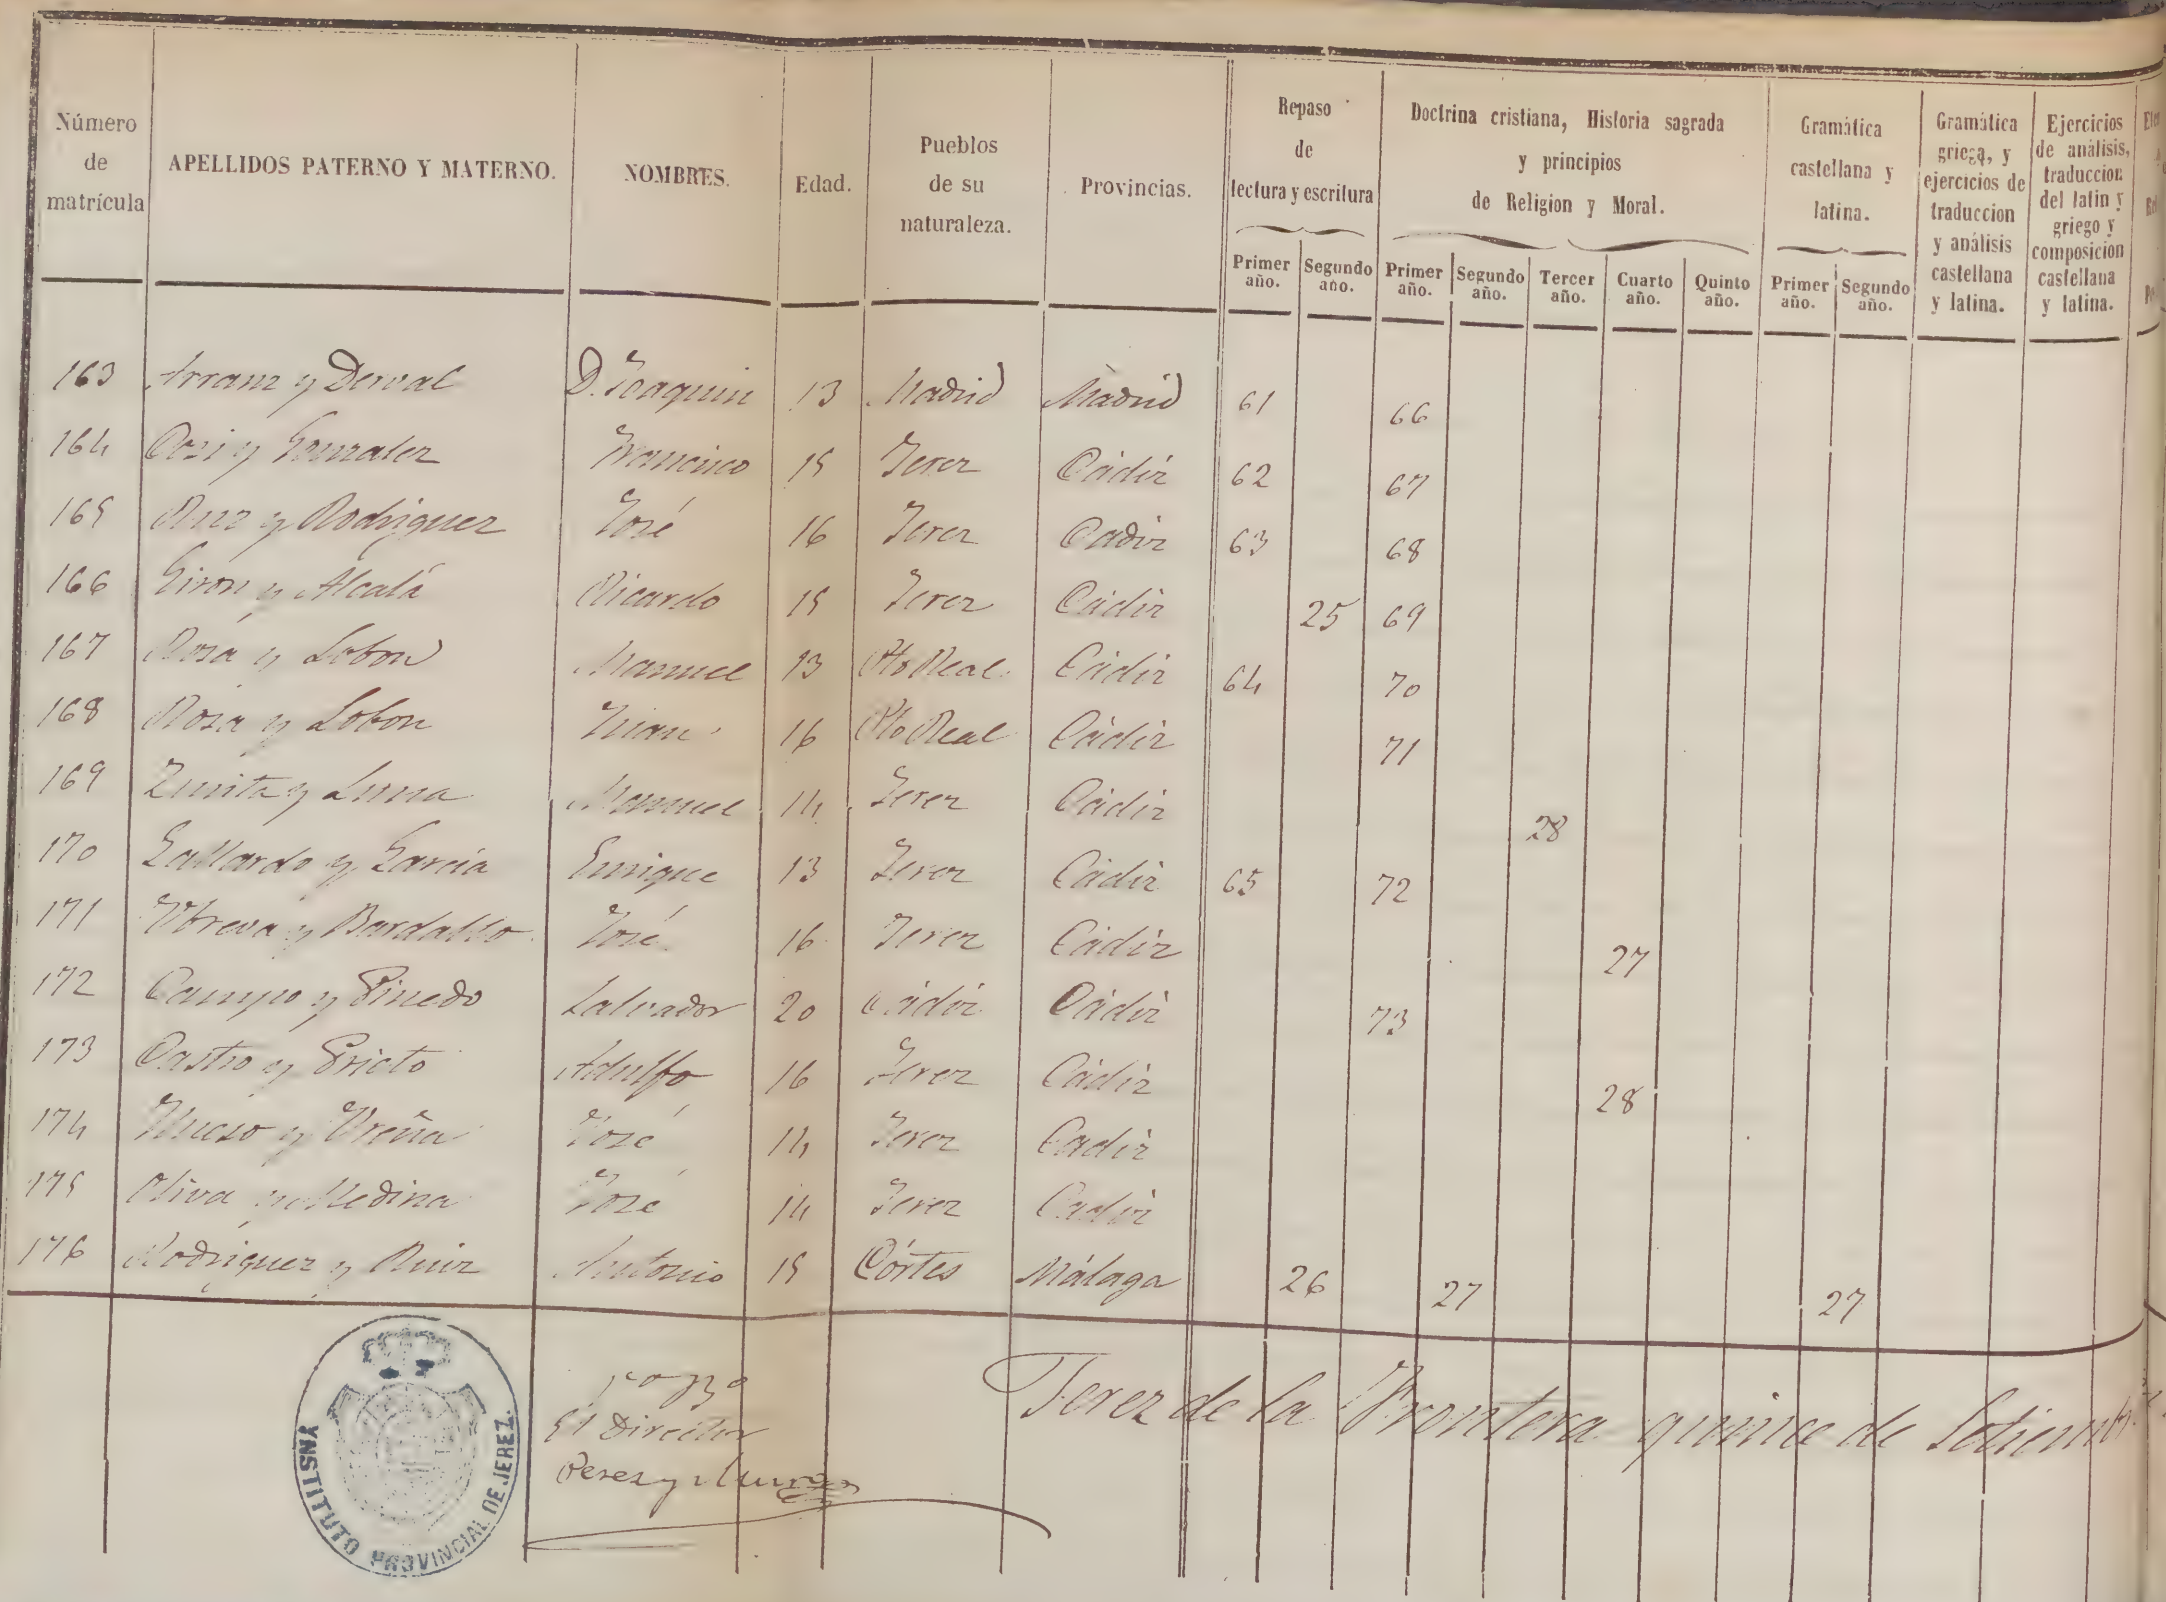 Número de matrícula
APELLIDOS PATERNO Y MATERNO.
NOMBRES.
Edad.
Pueblos de su naturaleza.
Provincias.
Repaso de lectura y escritura
Primer año. Segundo año.
Doctrina cristiana, Historia sagrada y principios de Religion y Moral.
Primer año. Segundo año. Tercer año. Cuarto año. Quinto año.
Gramática castellana y latina.
Primer año. Segundo año.
Gramática griega, y ejercicios de traduccion y análisis castellana y latina.
Ejercicios de análisis, traduccion del latin y griego y composicion castellana y latina.
163 Arranz y Derval D. Joaquin 13 Madrid Madrid 61 66
164 y Gonzalez Francisco 15 Jerez Cádiz 62 67
165 Ruz y Rodriguez José 16 Jerez Cadiz 63 68
166 Giron y Alcalá Ricardo 15 Jerez Cádiz 25 69
167 Rosa y Lobon Manuel 13 Pto Real Cádiz 64 70
168 Rosa y Lobon Juan 16 Pto Real Cádiz 71
169 Zurita y Luna Manuel 14 Jerez Cádiz 28
170 Gallardo y García Enrique 13 Jerez Cádiz 65 72
171 y Bardallo José 16 Jerez Cádiz 27
172 Campo y Pinedo Salvador 20 Cádiz Cádiz 73
173 Castro y Prieto Adolfo 16 Jerez Cádiz 28
174 y Ureña José 14 Jerez Cadiz
175 Oliva y Medina José 14 Jerez Cadiz
176 Rodriguez y Ruiz Antonio 15 Córtes Málaga 26 27 27
Vo Bo
El Director
Perez y
Jerez de la Frontera quince de Setiembre
INSTITUTO PROVINCIAL DE JEREZ.